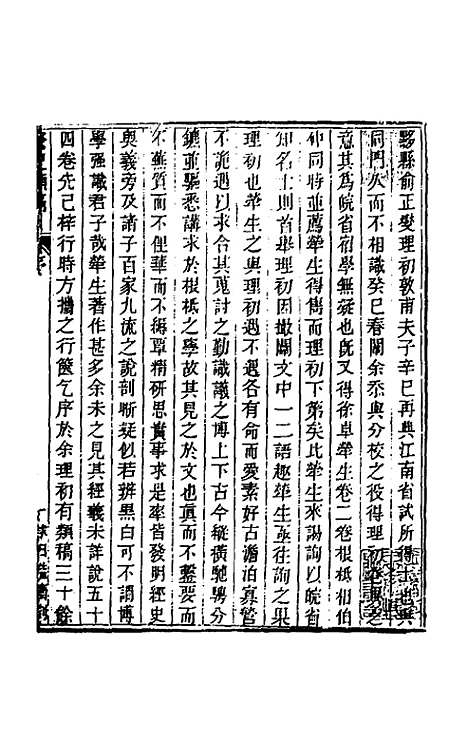 黟縣俞正燮理初敦甫夫子辛巳再典江南省試所得士也與
同門久而不相識癸巳春闈余忝與分校之役得理初卷識之
意其為皖省宿學無疑也旣又得徐卓犖生卷二卷根柢相伯
仲同時並薦犖生得雋而理初下第矣比犖生來謁詢以皖省
知名士則首舉理初因撤闈文中一二語趣犖生亟往詢之果
理初也犖生之與理初遇不遇各有命而愛素好古澹泊眞管
不詭遇以求合其蒐討之勤識議之博上下古今縱橫馳騁分
鑣並驅悉講求於根柢之學故其見之於文也眞而不鑿要而
不蕪質而不俚華而不縟覃精研思實事求是率皆發明經史
奧義旁及諸子百家九流之說剖晰疑似若辨黑白可不謂博
學强識君子哉犖生著作甚多余未之見其經義未詳說五十
四卷先已梓行時方攜之行篋乞序於余理初有類稿三十餘